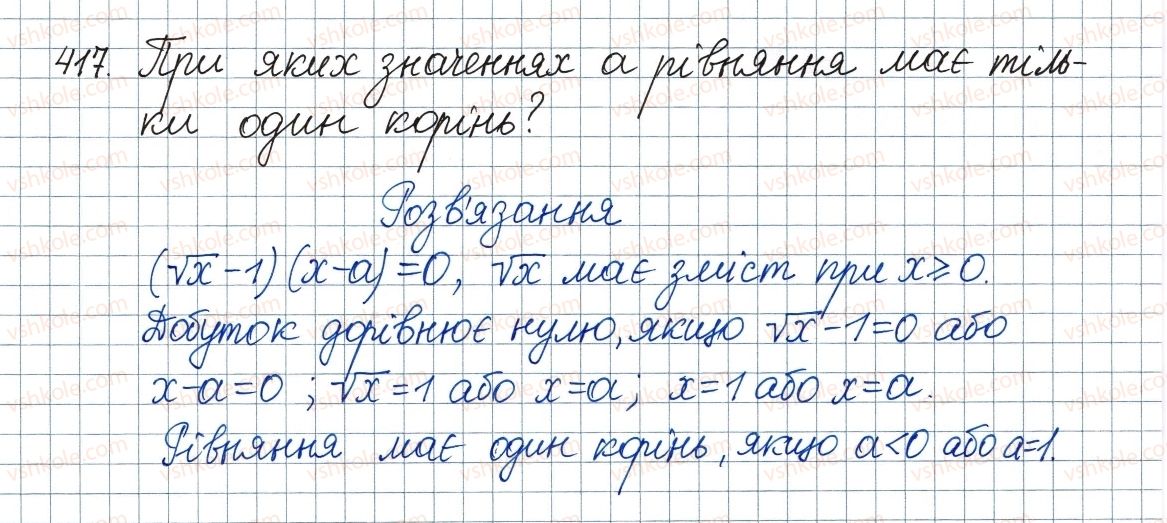 417. При яких значеннях а рівняння має тіль-
ки один корінь?
Розв'язання
(√x-1)(x-a)=0, √x має зміст при x≥0.
Добуток дорівнює нулю, якщо √x-1=0 або
x-a=0; √x=1 або x=a; x=1 або x=a.
Рівняння має один корінь, якщо a<0 або a=1.